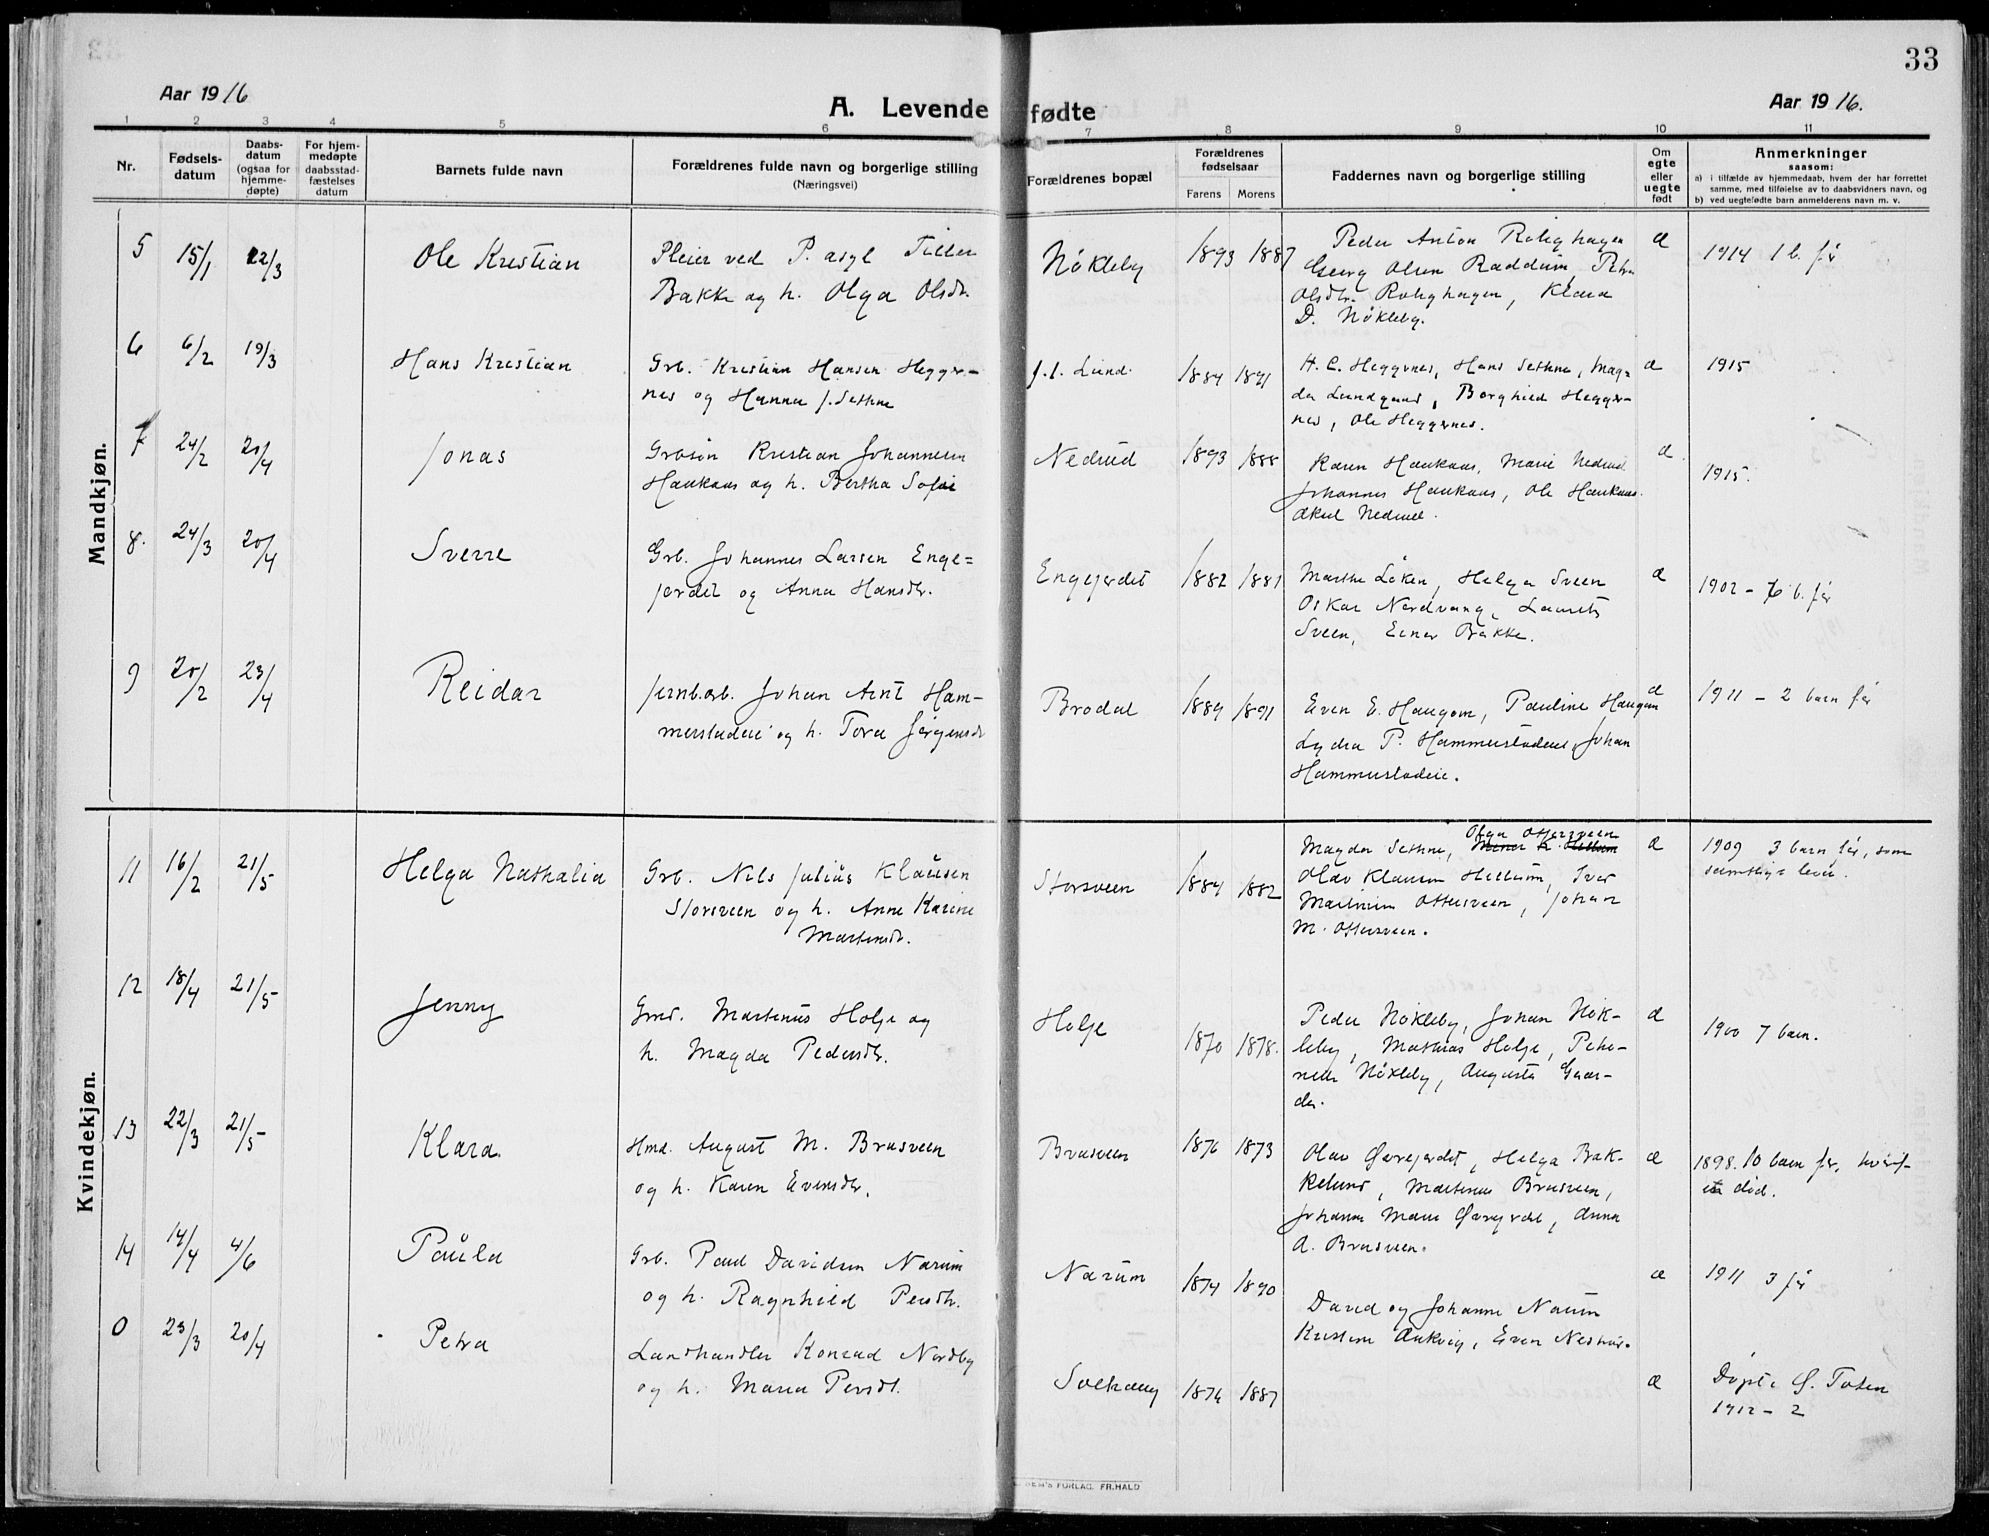 33
Aar 1916
A. Levende fødte
Aar 1916.
1 2 3 4 5 6 7 8 9 10 11
Nr.
Fødsels-
datum
Daabs-
datum
(ogsaa for
hjemme-
døpte)
For hjem-
medøpte
daabsstad-
fæstelses
datum
Barnets fulde navn
Forældrenes fulde navn og borgerlige stilling
(Næringsvei)
Forældrenes bopæl
Forældrenes
fødselsaar
Farens Morens
Faddernes navn og borgerlige stilling
Om
egte
eller
uegte
født
Anmerkninger
saasom:
a) i tilfælde av hjemmedaab, hvem der har forrettet
samme, med tilføielse av to daabsvidners navn, og
b) ved uegtefødte barn anmelderens navn m. v.
Mandkjøn.
5 15/1 22/3 Ole Kristian
Pleier ved P. asyl Tillen
Bakke og h. Olga Olsdt.
Nökleby 1893 1887
Peder Anton Rolighagen
Georg Olsen Raddum, Petra
Olsdt. Rolighagen, Klara
D. Nökleby.
æ 1914 1 b. før
6 6/2 19/3 Hans Kristian
Grb. Kristian Hansen Hegger-
nes og Hanna J. Sethne
f.t. Lund. 1884 1891
H. C. Heggenes, Hans Sethne, Mag-
da Lundgaard, Borghild Hegger-
nes, Ole Heggernes.
æ 1915
7 24/2 20/4 Jonas
Grbsøn Kristian Johannesen
Haukaas og h. Bertha Sofie
Nedrud 1893 1888
Karen Haukaas, Marie Nedrud
Johannes Haukaas, Ole Haukaas.
Aksel Nedrud.
æ. 1915.
8. 24/3 20/4 Sverre
Grb. Johannes Larsen Enge-
jordet og Anna Hansdt.
Engejordet 1882 1881
Marthe Løken, Helga Sveen
Oskar Nordvang, Laurits
Sveen, Einar Bakke.
æ 1902 - 7 b. før
9 20/2 23/4 Reidar
Jernb.arb. Johan Arnt Ham-
merstadeie og h. Tora Jörgensdt
Brodal 1889 1891
Even E. Haugom, Pauline Haugom
Lydia P. Hammerstadeie, Johan
Hammerstadeie.
æ 1911 - 2 barn før
Kvindekjøn.
11 16/2 21/5 Helga Nathalia
Grb. Nils Julius Klausen
Storsveen og h. Anne Karine
Martinsdt.
Storsveen 1884 1882
Olga Ottersveen
Magda Sethne,
Olav Klausen Hellum, Iver
Martinsen Ottersveen, Johan
M. Ottersveen.
æ 1909 3 barn før, som
samtlige lever.
12 18/4 21/5 Jenny
Gmd. Martinus Holje og
h. Magda Pedersdt.
Holje 1870 1878.
Peder Nökleby, Johan Nök-
leby, Mathias Holje, Pete-
nelle Nökleby, Augusta Gaar-
der.
æ 1900 7 barn.
13 22/3 21/5 Klara.
Hmd. August M. Brusveen
og h. Karen Evensdt.
Brusveen 1876 1873
Olav Øvrejordet, Helga Bak-
kelund, Martinus Brusveen,
Johanne Marie Øvrejordet, Anna
A. Brusveen.
æ 1898. 10 barn før, hvoraf
en død.
14 14/4 4/6 Paula
Grb. Paul Davidsen Narum
og h. Ragnhild Persdt.
Narum 1874 1890
David og Johanne Narum
Kristine Aukvig, Even Neshus.
æ 1911 3 før
0 23/3 20/4 Petra
Landhandler Konrad Nordby
og h. Maria Persdt.
Solhaug 1876 1887
æ Döpt i Ø. Toten
1912 - 2
FORLAG. FR.HALD